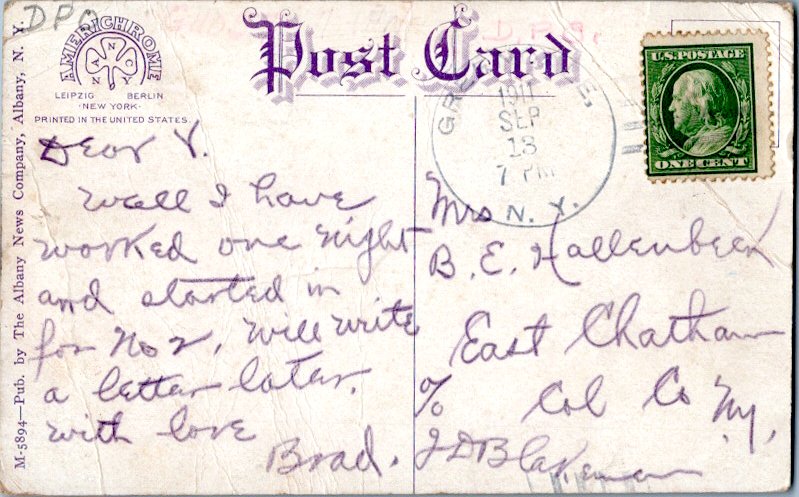 DPO
AMERICHROME
NANCY
LEIPZIG BERLIN
·NEW YORK·
PRINTED IN THE UNITED STATES.
Post Card
M-5894—Pub. by The Albany News Company, Albany, N. Y.
GR
E
1911
SEP
13
7 PM
N. Y.
U.S. POSTAGE
ONE CENT
Dear V.
Well I have
worked one night
and started in
for No 2, will write
a letter later.
with love
Brad.
Mrs
B. E. Hallenbeck
East Chatham
Col Co NY.
℅
J D Blakeman